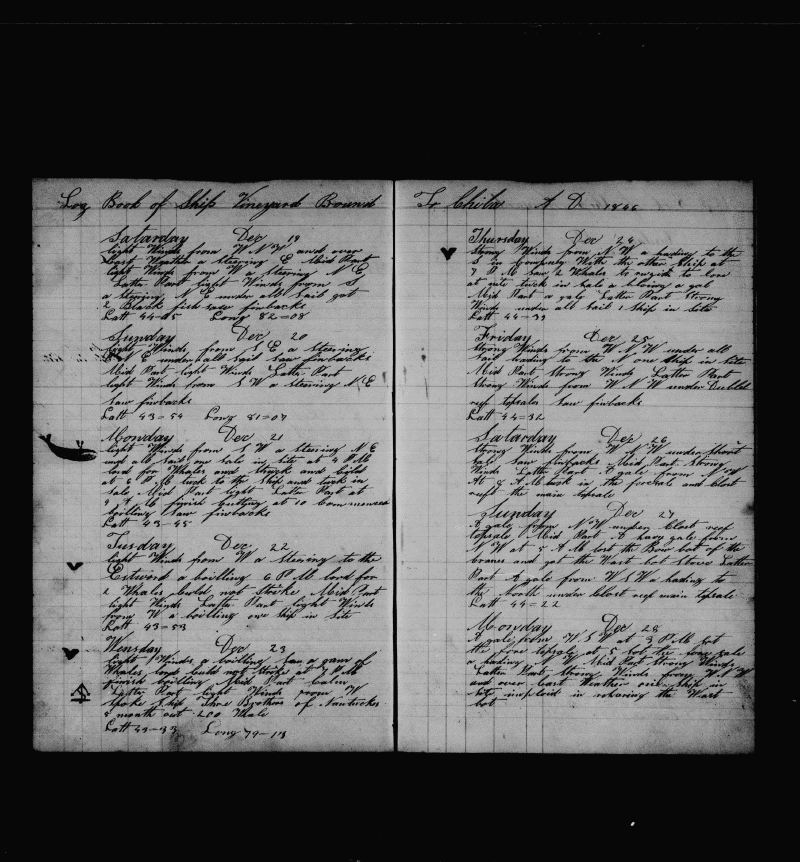 Log Book of Ship Vineyard Bound
Saturday Dec 19
light Winds from W N W and over
Cast Weather a steering E Mid Part
light Winds from W a steering N E
Latter Part light Winds from S
a steering N E under all sail got
2 Black fish saw finbacks
Latt 44=15 Long 82=08
Sunday Dec 20
light Winds from S E a steering
E under all sail saw finbacks
Mid Part light Winds Latter Part
light Winds from S W a steering N E
saw finbacks
Latt 43=54 Long 81=07
Monday Dec 21
light Winds from S W a steering N E
und all sail 1 sale in site at 4 P M
lord for Whales and Struck and kild
at 6 P M tuck to the Ship and tuck in
sale Mid Part light Latter Part at
9 A M finish cutting at 10 Commenced
boilling Saw finbacks
Latt 43=45
Tusday Dec 22
light Winds from W a stering to the
Estword a boilling 6 P M lord for
2 Whales Could not Strike Mid Part
light Winds Latter Part light Winds
from W a boilling one Ship in Site
Latt 43=53
Wensday Dec 23
light Winds a boilling saw a gam of
Whales lord could not Strike at 7 P M
finish boilling Mid Part calm
Latter Part light Winds from W
Spoke Ship Three Brothers of Nantucket
5 month out 200 Whale
Latt 43=33 Long 79=13
To Chila A D 1846
Thursday Dec 24
Strong Winds from N W a hading to the
S in Company With the other Ship at
7 P M saw 2 Whales to rugid to lore
at nite tuck in sale a bloing a gal
Mid Part a gale Latter Part Strong
Winds under all sail 1 Ship in Site
Latt 44=39
Friday Dec 25
Strong Winds from W N W under all
sail heading to the N one Ship in Site
Mid Part Strong Winds Latter Part
Strong Winds from W N W under Dubble
reef topsales Saw finbacks
Latt 44=32
Saturday Dec 26
Strong Winds from W N W under Short
sale saw finbacks Mid Part Strong
Winds Latter Part a gale from N W
At 8 A M tuck in the foresale and Clost
reeft the main topsale
Sunday Dec 27
A gale from N W under Clost reef
topsale Mid Part A havy gale from
N W at 5 A M lost the Bow bot of the
cranes and got the Wast bot Stove Latter
Part A gale from W S W a hading to
the North under Clost reef main topsale
Latt 44=22
Monday Dec 28
A gale from W S W at 3 P M sot
the fore topsale at 5 sot the fore sale
a hading N W Mid Part Strong Winds
Latter Part Strong Winds from W N W
and over Cast Weather one Ship in
site imploid in reparing the Wast
bot